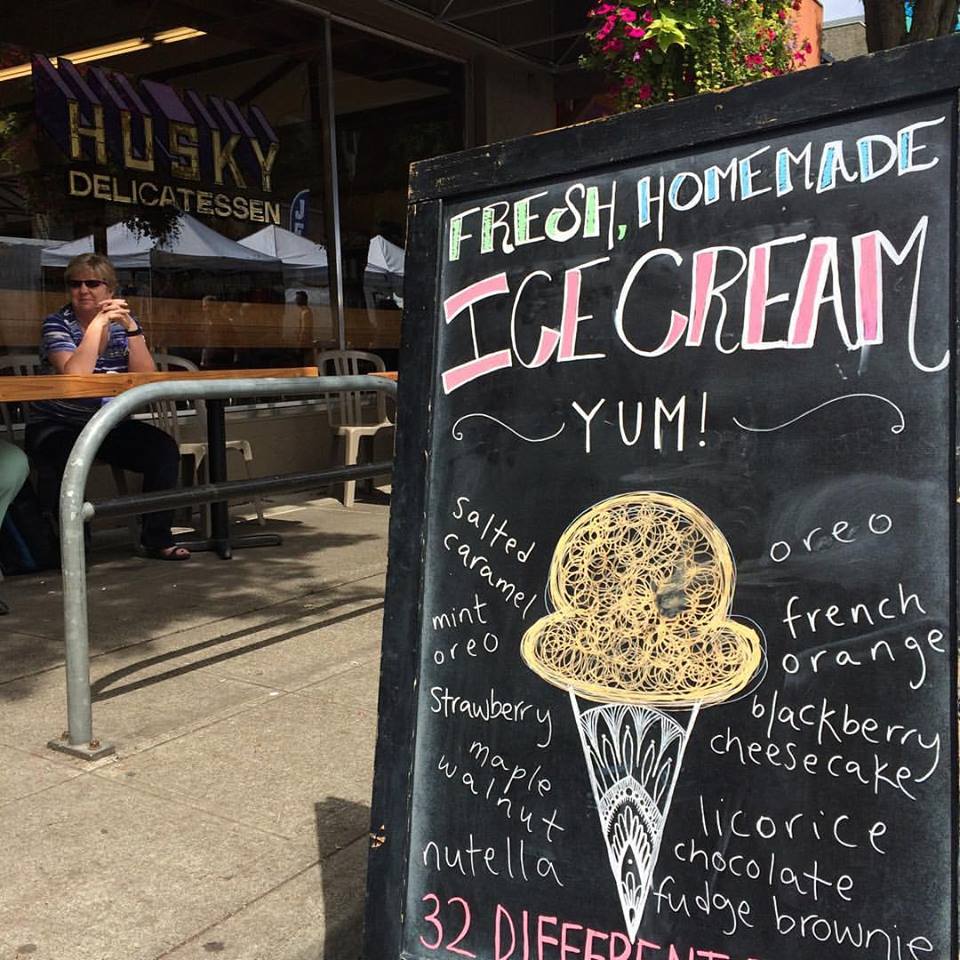 HUSKY
DELICATESSEN
FRESH, HOMEMADE
ICE CREAM
YUM!
salted
caramel
mint
oreo
strawberry
maple
walnut
nutella
oreo
french
orange
blackberry
cheesecake
licorice
chocolate
fudge brownie
32 DIFFERENT